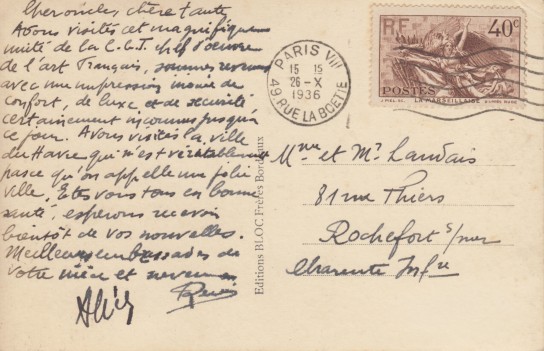 Chers oncles, chère tante
Avons visités cet magnifique
unité de la C.G.T. chef d'œuvre
de l'art français, sommes revenus
avec une impression inouïe de
confort, de luxe et de sécurité
certainement inconnus jusqu'à
ce jour. Avons visités la ville
du Havre qui n'est véritablement
pas ce qu'on appelle une jolie
ville. Etes vous tous en bonne
santé, espérons recevoir
bientôt de vos nouvelles.
Meilleures embrassades de
votre nièce et neveu
Alice
Editions BLOC Frères Bordeaux
PARIS VIII
15 15
26 - X
1936
49, RUE LA BOETIE
RF
40c
POSTES
LA MARSEILLAISE
Mme et Mr Landais
81 rue Thiers
Rochefort s/mer
Charente Infre